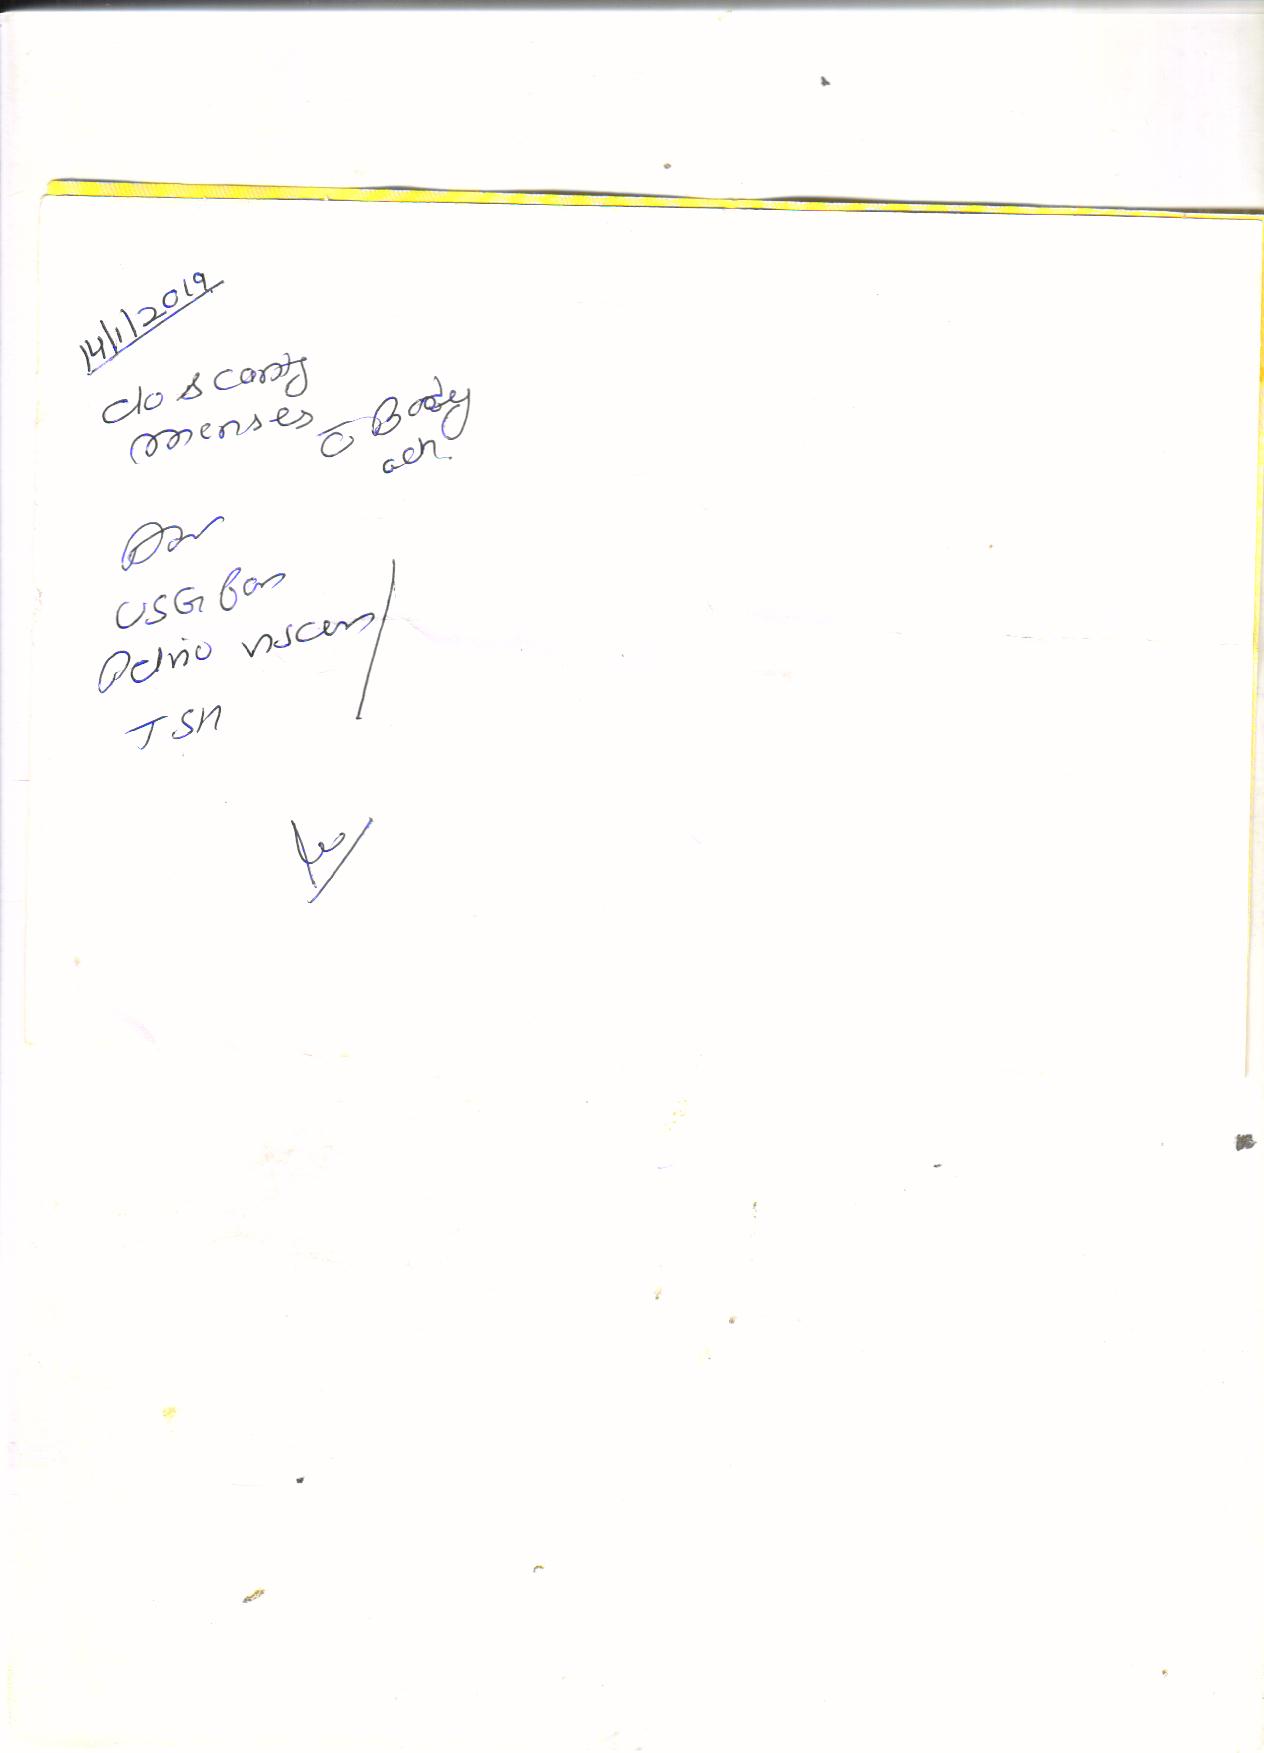 14/1/2019
c/o scanty
menses c̄ Body
ach.
Adv
USG for
Pelvic viscera
TSH